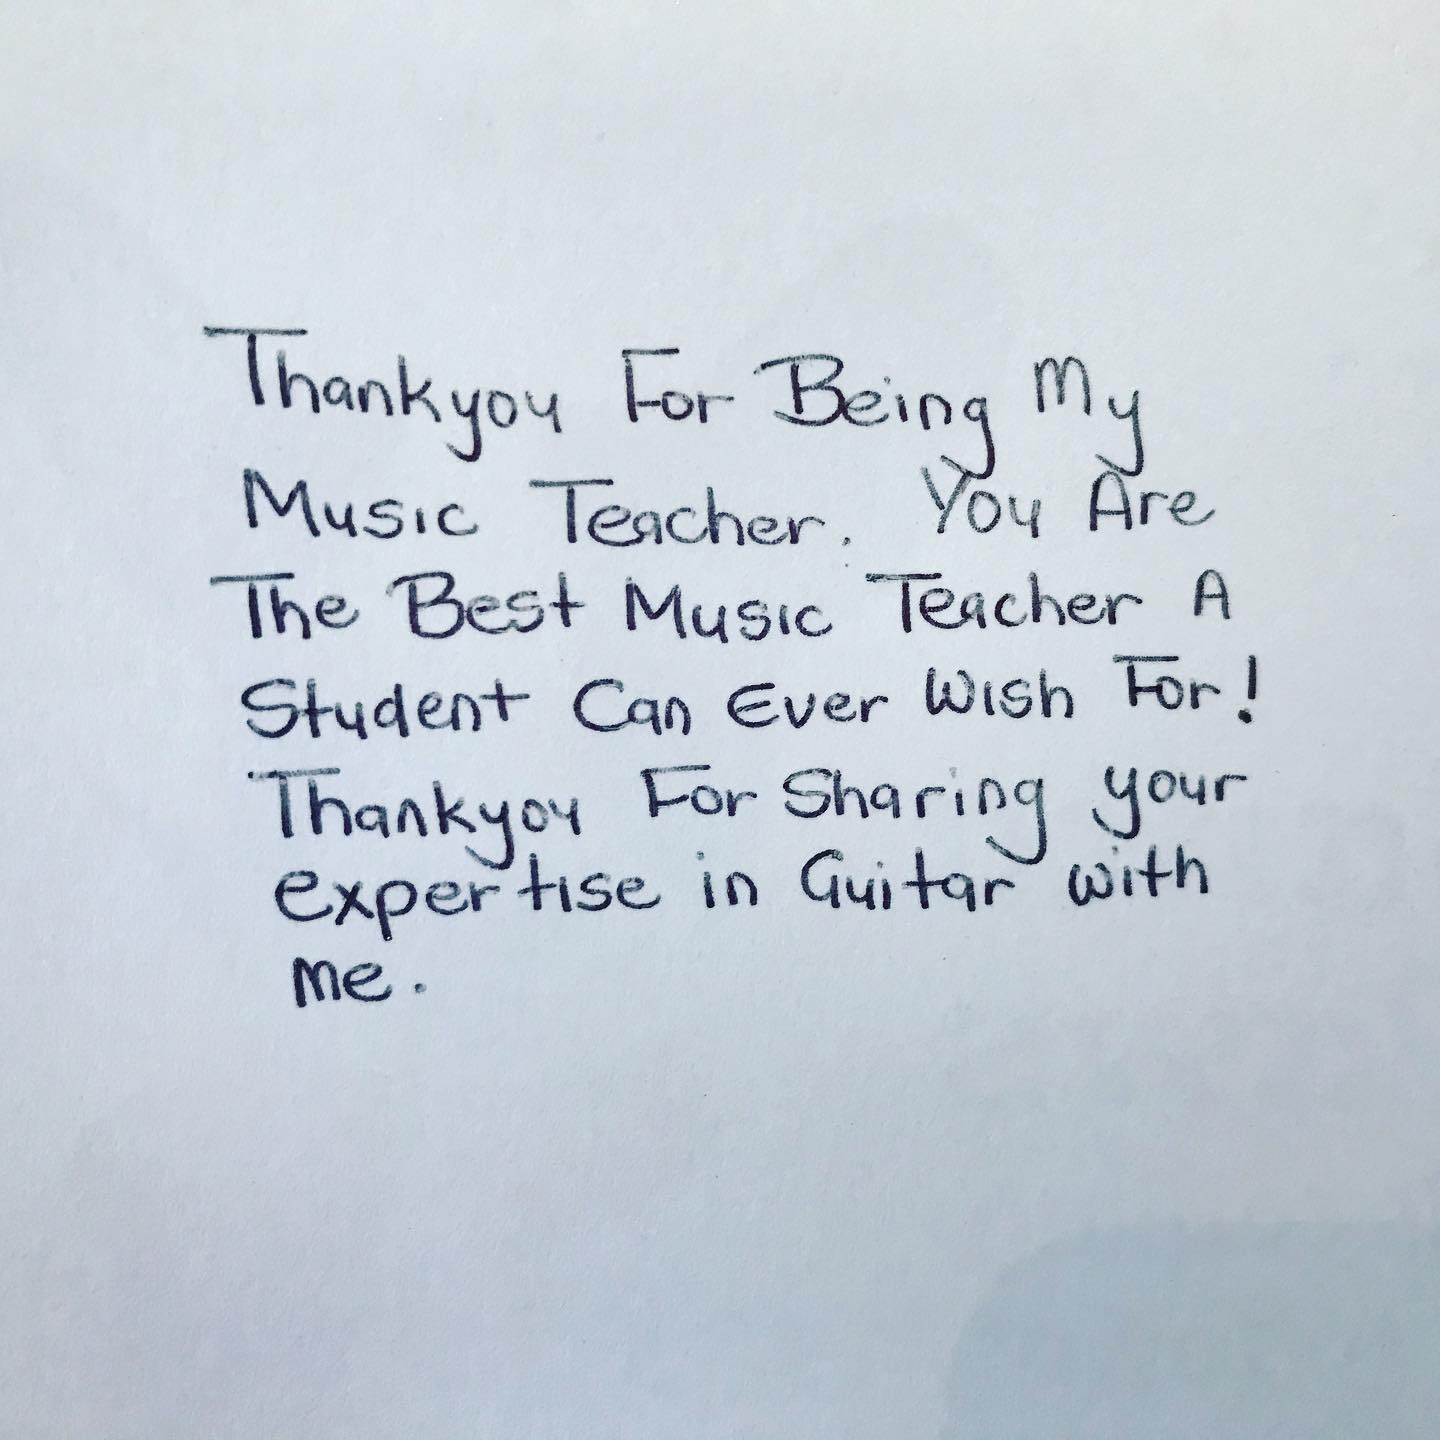 Thankyou For Being My
Music Teacher. You Are
The Best Music Teacher A
Student Can Ever Wish For!
Thankyou For Sharing your
expertise in Guitar with
me.